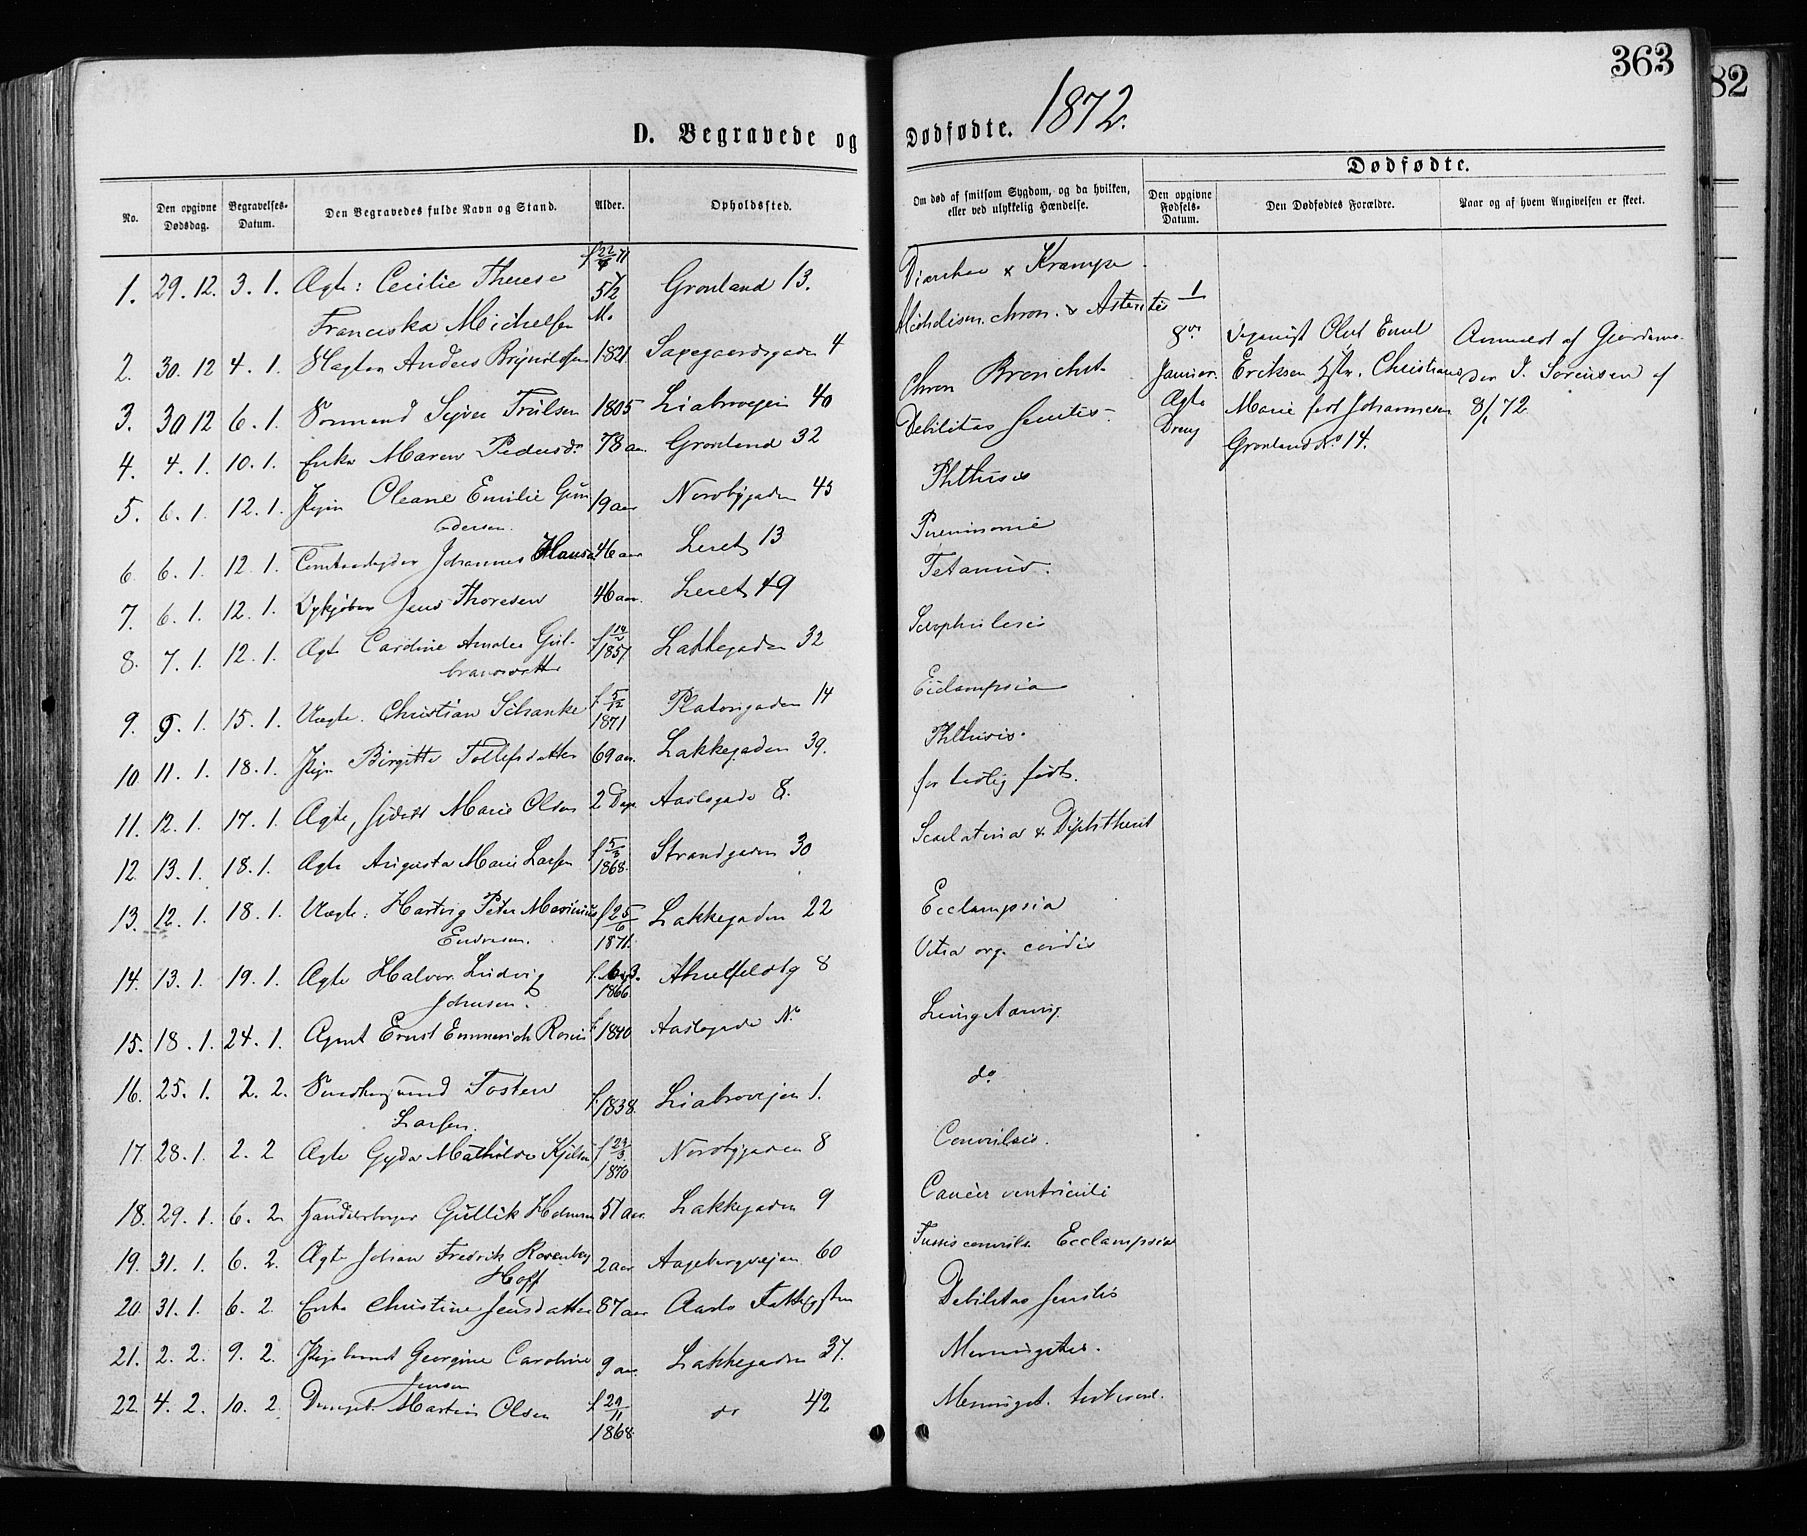 363
82
D. Begravede og Dødfødte. 1872.
Dødfødte.
No.
Den opgivne Dødsdag.
Begravelses-Datum.
Den Begravedes fulde Navn og Stand.
Alder.
Opholdssted.
Om død af smitsom Sygdom, og da hvilken, eller ved ulykkelig Hændelse.
Den opgivne Fødsels-Datum.
Den Dødfødtes Forældre.
Naar og af hvem Angivelsen er skeet.
1. 29. 12. 3. 1. Ægte: Cecilie Therese f 22/4 71 Grønland 13. Krampe
Franciska Michelsen 5 1/2 M. chron. 1
2. 30. 12 4. 1. Anders 1821. 4 Chron Bronchit 8de Oluf Emil Anmeldt af
3. 30 12 6. 1. Sejver Trulsen 1805 Liabroveien 40 Debilitas senilis Januar. Eriksen Hstr. Christiane J. Sørensen af
4. 4. 1. 10. 1. Enke Maren Pedersd. 78 aar. Grønland 32 Phthisis Ægte Marie født Johannesen 8/1 72.
Dreng Grønland No 14.
5. 6. 1. 12. 1. Pigen Oleane Emilie Gun 19 aar Nordbygaden 43 Pneumonie
dersen.
6. 6. 1. 12. 1. Johannes Hansen 46 aar Leret 13 Tetanus.
7. 6. 1. 12. 1. Jens Thoresen 46 aar. Leret 49
8. 7. 1. 12. 1. Ægte Caroline Amalie Gul- f 14/2 1857 Lakkegaden 32
bransdatter
9. 9. 1. 15. 1. Uægte. Christian Schanke f. 5/12 1871 Platousgaden 14 Phthisis.
10. 11. 1. 18. 1. Pige Birgitte Tollefsdatter 69 aar. Lakkegaden 39. for tidlig født.
11. 12. 1. 17. 1. Ægte, Marie Olsen 2 Dage Aaslogade 8. Scarlatina & Diphtherit
12. 13. 1. 18. 1. Ægte Augusta Marie Larsen f 5/3 1868. Strandgaden 30
13. 12. 1. 18. 1. Uægte: Hartvig Peter Marinius f 25/6 1871. Lakkegaden 22 Ecclampsia
Endresen. Vitia org. cordis
14. 13. 1. 19. 1. Ægte Halvor Ludvig 1866 8
Johnsen.
15. 18. 1. 24. 1. Agent Ernst Emmerich f. 1840 Aaslogade No
16. 25. 1. 2. 2. Tosten f. 1838. Liabroveien 1. do
Larsen.
17. 28. 1. 2. 2 Ægte Gyda Mathilde f 1870 Nordbygaden 8 Convulsis.
18. 29. 1. 6. 2. Handelsborger Gullik 51 aar. Lakkegaden 9 Cancer ventriculi
19. 31. 1. 6. 2. Ægte Johan Fredrik Rosenberg 2 aar Aagebergveien 60 Tussis convuls. Ecclampsia
Hoff
20. 31. 1. 6. 2. Enke Christine Jensdatter 87 aar Debilitas senilis
21. 2. 2. 9. 2. Pigebarnet Georgine Caroline 9 aar Lakkegaden 37.
Jensen
22. 4. 2. 10. 2. Olsen f 29/11 1868. do 42 Meningit.